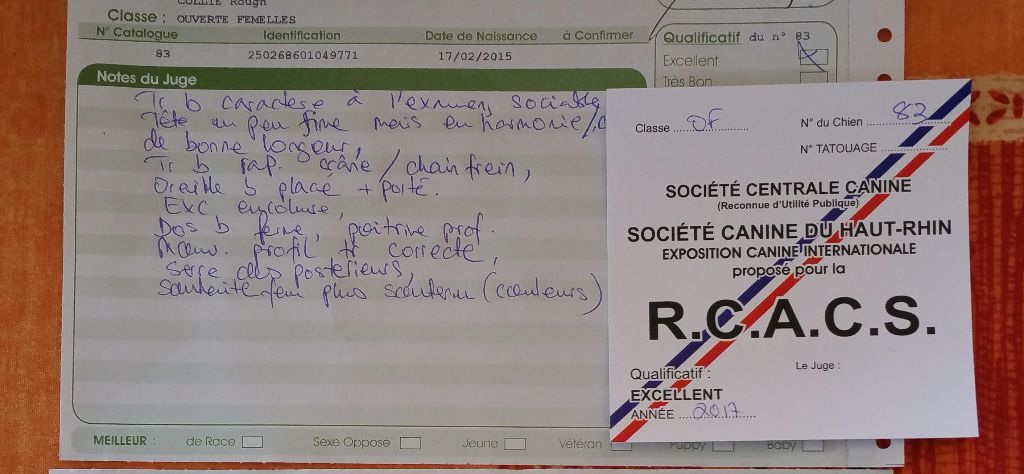 COLLIE Rough
Classe : OUVERTE FEMELLES
N° Catalogue Identification Date de Naissance à Confirmer
83 250268601049771 17/02/2015
Qualificatif du n° 83
Excellent
Très Bon
Notes du Juge
Tr b caractère à l'examen, sociable
Tête un peu fine mais en harmonie/
de bonne longeur,
Tr b rap. crâne / chanfrein,
Oreille b placé + porté.
Exc encolure,
Dos b ferme, poitrine prof.
Mouv. profil tr correcte,
serre des postérieurs,
souhaite fem plus soutenu (couleurs)
MEILLEUR : de Race Sexe Opposé Jeune Vétéran Puppy Baby
Classe OF N° du Chien 83
N° TATOUAGE
SOCIÉTÉ CENTRALE CANINE
(Reconnue d'Utilité Publique)
SOCIÉTÉ CANINE DU HAUT-RHIN
EXPOSITION CANINE INTERNATIONALE
proposé pour la
R.C.A.C.S.
Le Juge :
Qualificatif :
EXCELLENT
ANNÉE 2017